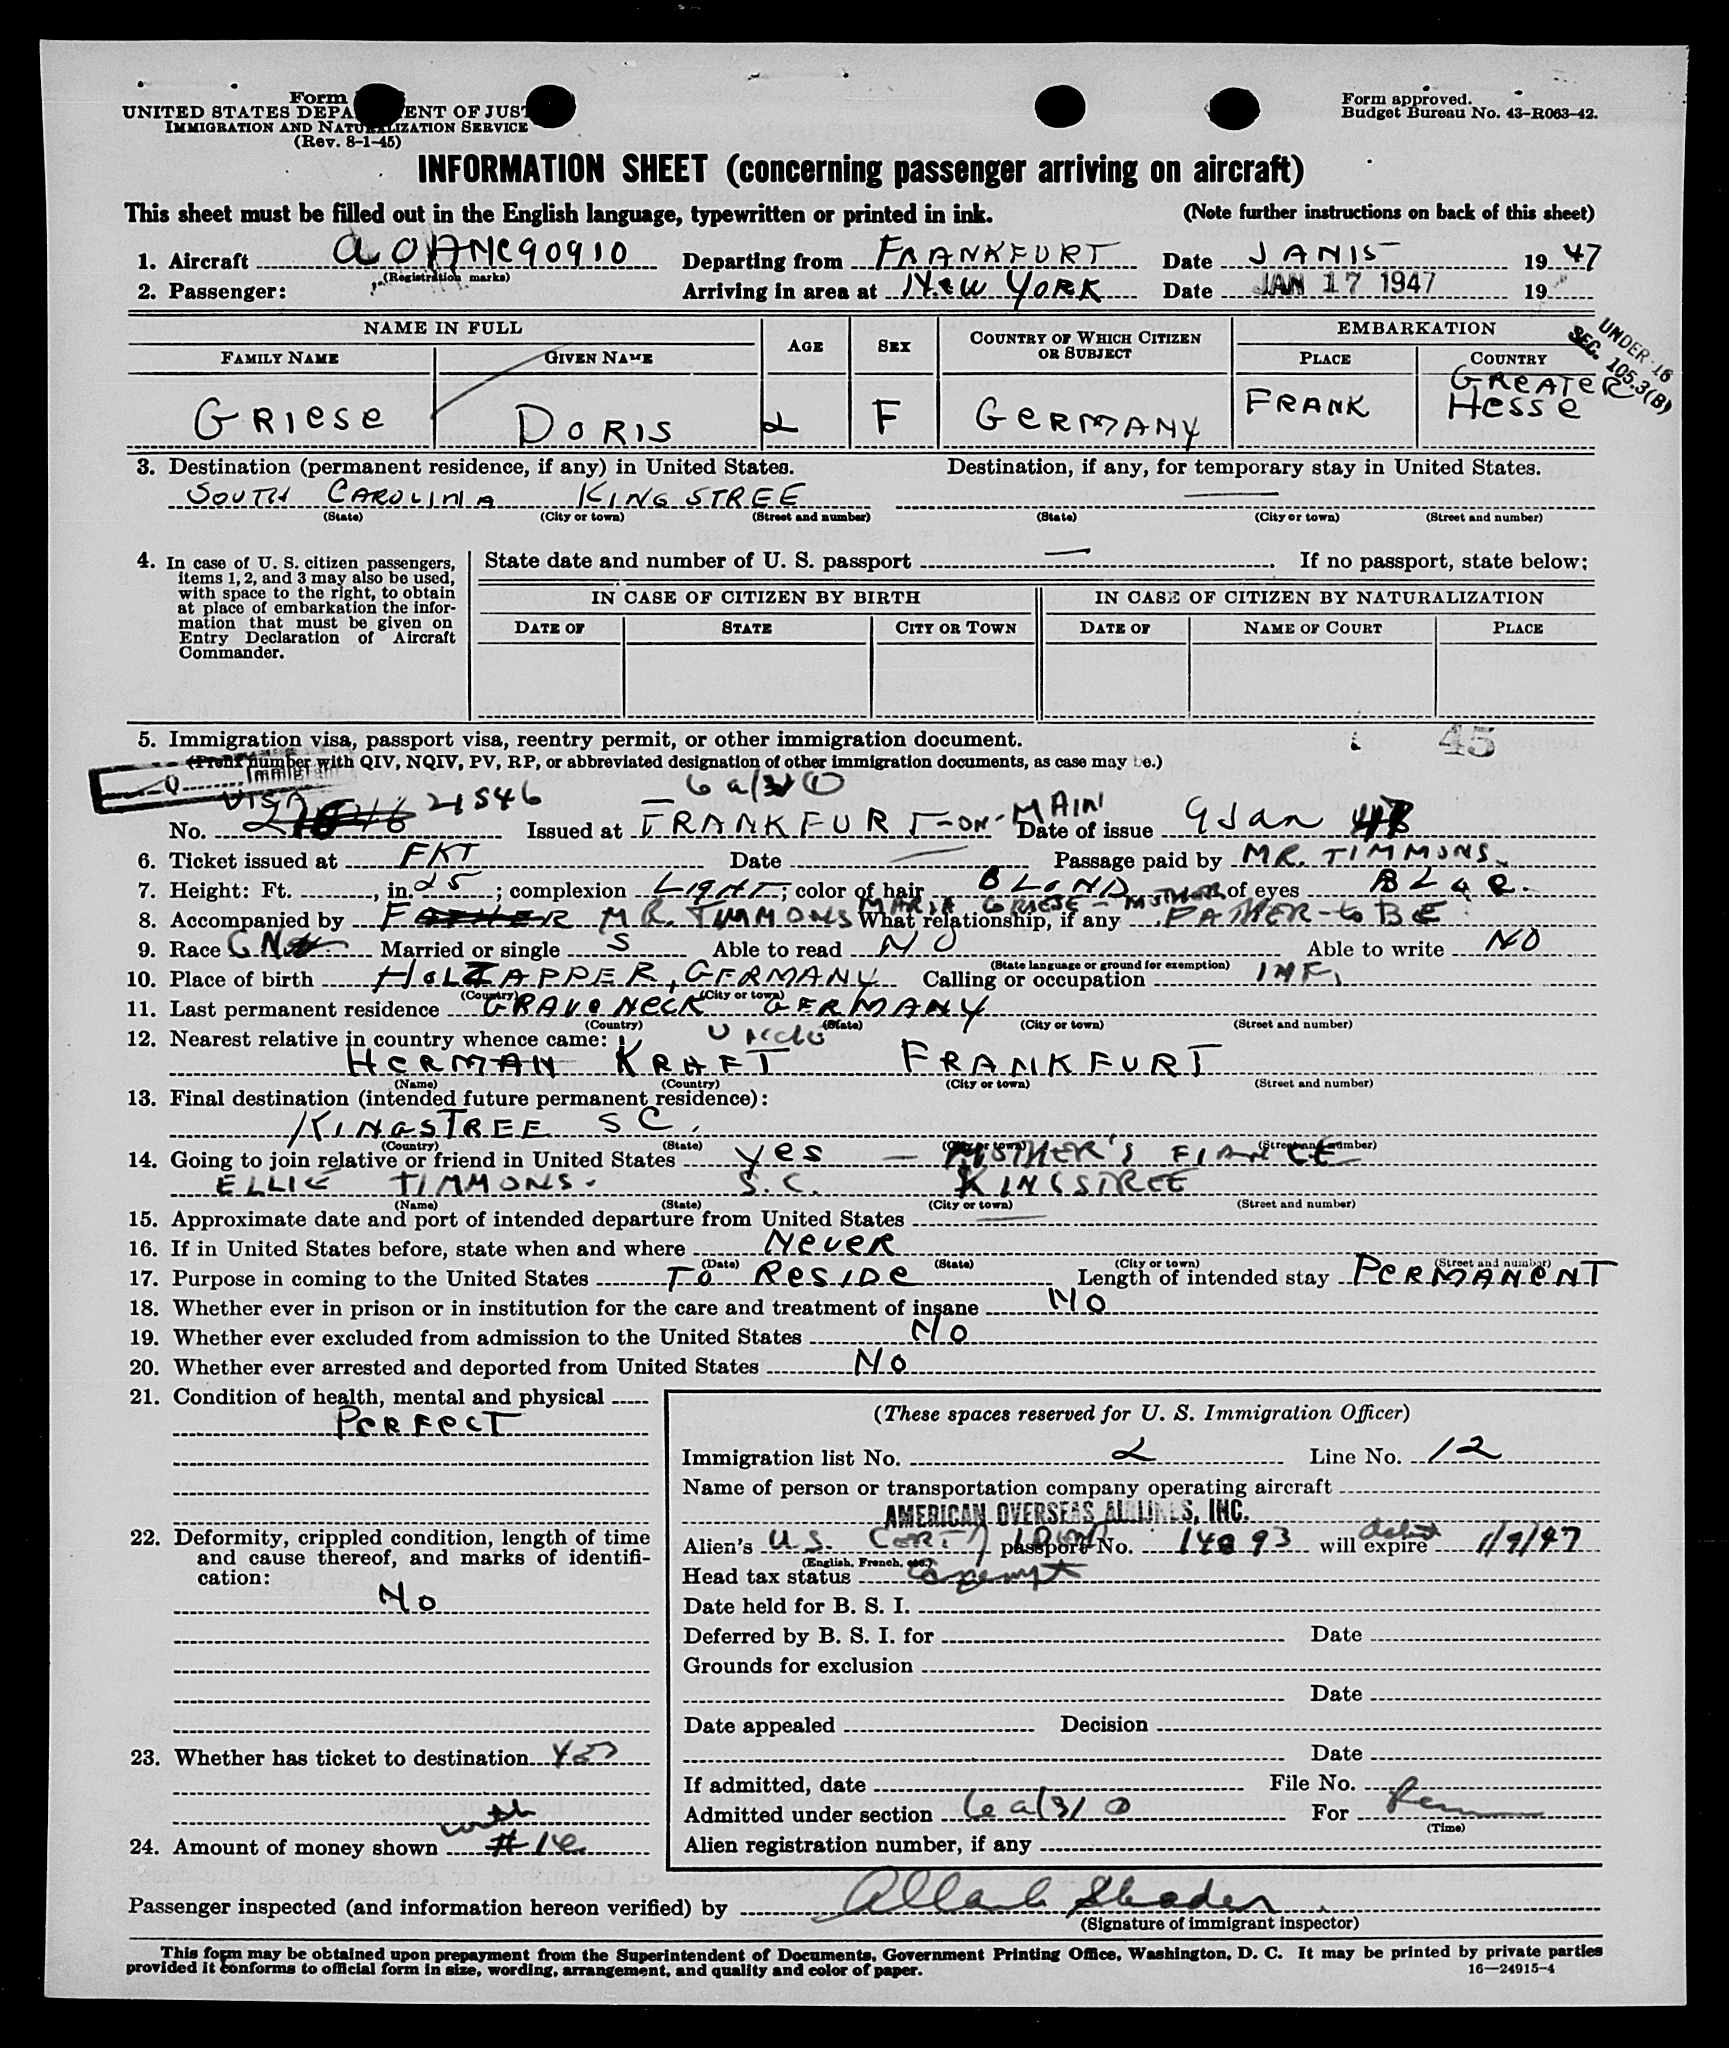 Form
UNITED STATES DEPA ENT OF JUST
IMMIGRATION AND NATURALIZATION SERVICE
(Rev. 8-1-45)
Form approved.
Budget Bureau No. 43-R063-42.
INFORMATION SHEET (concerning passenger arriving on aircraft)
This sheet must be filled out in the English language, typewritten or printed in ink. (Note further instructions on back of this sheet)
1. Aircraft AOANC90910 Departing from FRANKFURT Date JAN 15 1947
(Registration marks)
2. Passenger: Arriving in area at NEW YORK Date JAN 17 1947 19
NAME IN FULL AGE SEX COUNTRY OF WHICH CITIZEN OR SUBJECT EMBARKATION
FAMILY NAME GIVEN NAME PLACE COUNTRY
UNDER 16
SEC. 105.3(B)
GRIESE DORIS 2 F GERMANY FRANK GREATER HESSE
3. Destination (permanent residence, if any) in United States. Destination, if any, for temporary stay in United States.
SOUTH CAROLINA KINGSTREE —
(State) (City or town) (Street and number) (State) (City or town) (Street and number)
4. In case of U. S. citizen passengers, items 1, 2, and 3 may also be used, with space to the right, to obtain at place of embarkation the information that must be given on Entry Declaration of Aircraft Commander.
State date and number of U. S. passport — . If no passport, state below:
IN CASE OF CITIZEN BY BIRTH IN CASE OF CITIZEN BY NATURALIZATION
DATE OF STATE CITY OR TOWN DATE OF NAME OF COURT PLACE
5. Immigration visa, passport visa, reentry permit, or other immigration document. 45
(Prefix number with QIV, NQIV, PV, RP, or abbreviated designation of other immigration documents, as case may be.)
Q Immigrant
VISA 21546 6a(3)0
No. Issued at FRANKFURT-ON-MAIN Date of issue 9 Jan 47
6. Ticket issued at FKT Date — Passage paid by MR. TIMMONS.
7. Height: Ft. , in. 25; complexion LIGHT; color of hair BLOND of eyes BLUE.
MARIA GRIESE - MOTHER
8. Accompanied by FATHER MR. TIMMONS What relationship, if any FATHER-to BE
9. Race Married or single S Able to read NO Able to write NO
(State language or ground for exemption)
10. Place of birth HOLZAPPER, GERMANY Calling or occupation INF.
(Country) (City or town)
11. Last permanent residence GRAVENECK GERMANY
(Country) (State) (City or town) (Street and number)
12. Nearest relative in country whence came: Uncle
HERMAN KRAFT FRANKFURT
(Name) (Country) (City or town) (Street and number)
13. Final destination (intended future permanent residence):
KINGSTREE S C.
(Country) (State) (City or town) (Street and number)
14. Going to join relative or friend in United States yes — MOTHER'S FIANCE
ELLIE TIMMONS. S.C. KINGSTREE
(Name) (State) (City or town) (Street and number)
15. Approximate date and port of intended departure from United States —
16. If in United States before, state when and where NEVER
(Date) (State) (City or town) (Street and number)
17. Purpose in coming to the United States TO RESIDE Length of intended stay PERMANENT
18. Whether ever in prison or in institution for the care and treatment of insane NO
19. Whether ever excluded from admission to the United States NO
20. Whether ever arrested and deported from United States NO
21. Condition of health, mental and physical
PERFECT
22. Deformity, crippled condition, length of time and cause thereof, and marks of identification:
NO
23. Whether has ticket to destination yes
24. Amount of money shown with #12
(These spaces reserved for U. S. Immigration Officer)
Immigration list No. 2 Line No. 12
Name of person or transportation company operating aircraft
AMERICAN OVERSEAS AIRLINES, INC.
Alien's U.S. CERT. IDENT passport No. 14893 will expire dated 1/9/47
(English, French, etc.)
Head tax status Exempt
Date held for B. S. I.
Deferred by B. S. I. for Date
Grounds for exclusion
Date
Date appealed Decision
Date
If admitted, date File No.
Admitted under section 6a(3)0 For Perm
(Time)
Alien registration number, if any
Passenger inspected (and information hereon verified) by
(Signature of immigrant inspector)
This form may be obtained upon prepayment from the Superintendent of Documents, Government Printing Office, Washington, D. C. It may be printed by private parties
provided it conforms to official form in size, wording, arrangement, and quality and color of paper. 16—24915-4